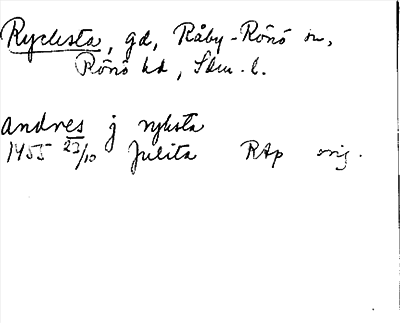 Ryckesta, gd, Råby-Rönö sn,
Rönö hd, Sdm. l.
andres j rykesta
1455 23/10 Julita RAp orig.